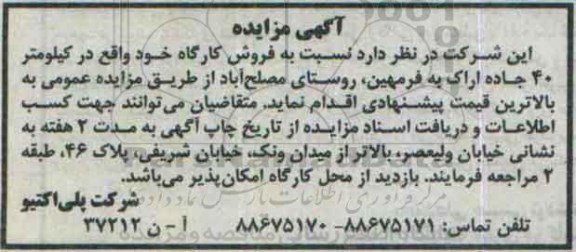 آگهی مزایده
این شرکت در نظر دارد نسبت به فروش کارگاه خود واقع در کیلومتر
۴۰ جاده اراک به فرمهین، روستای مصلح‌آباد از طریق مزایده عمومی به
بالاترین قیمت پیشنهادی اقدام نماید. متقاضیان می‌توانند جهت کسب
اطلاعات و دریافت اسناد مزایده از تاریخ چاپ آگهی به مدت ۲ هفته به
نشانی خیابان ولیعصر، بالاتر از میدان ونک، خیابان شریفی، پلاک ۴۶، طبقه
۲ مراجعه فرمایند. بازدید از محل کارگاه امکان‌پذیر می‌باشد.
شرکت پلی‌اکتیو
تلفن تماس: ۸۸۶۷۵۱۷۱- ۸۸۶۷۵۱۷۰ آ - ن ۳۷۲۱۲